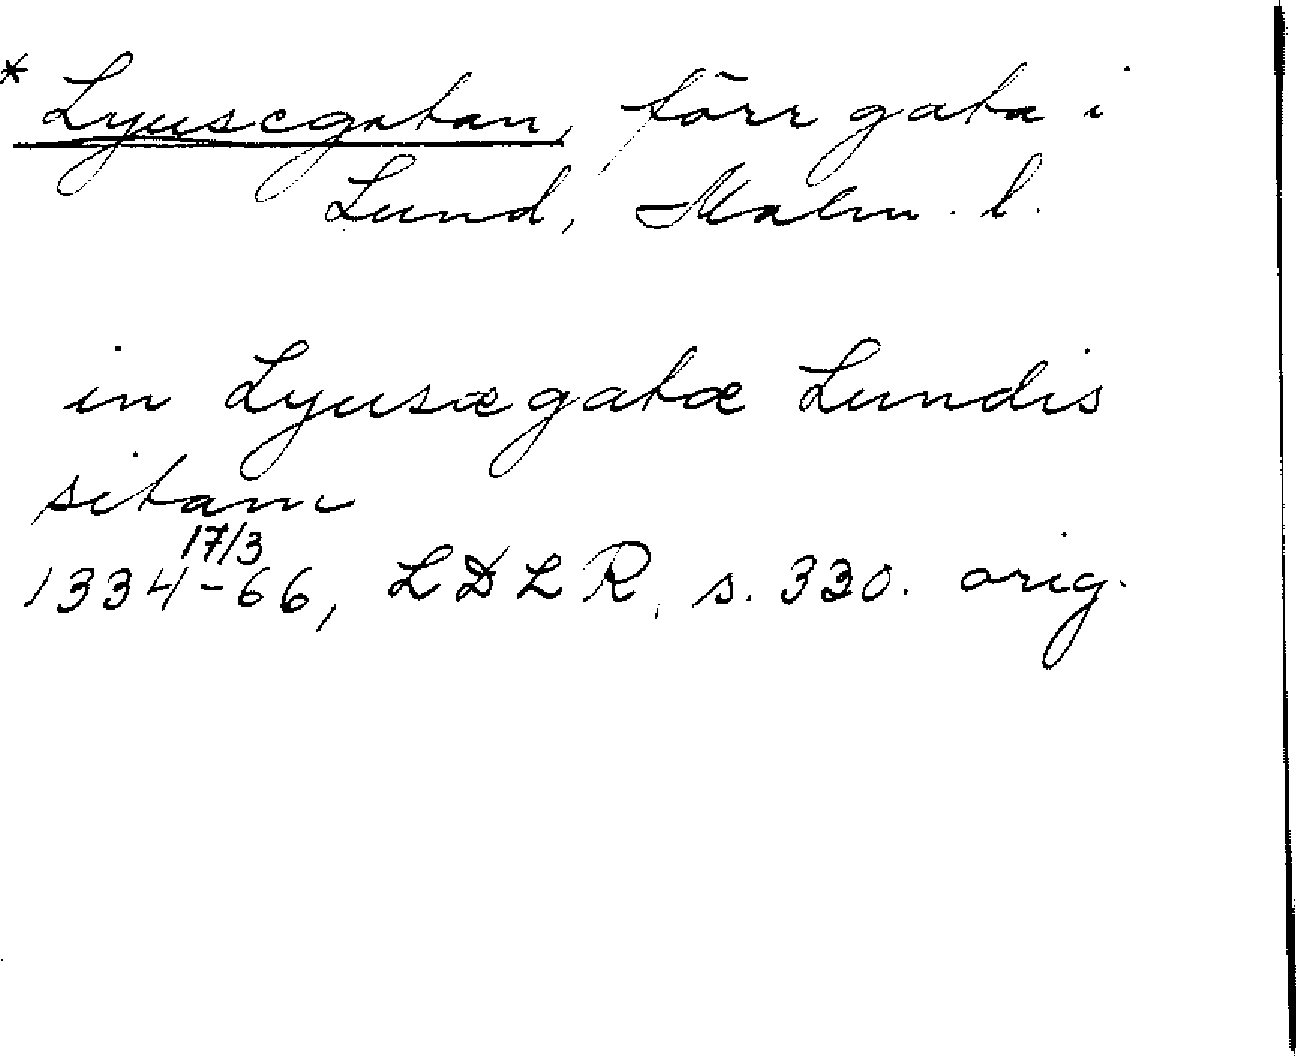 * Lyusegatan, förr gata i
Lund, Malm. l.
in Lyusægatæ Lundis
sitam
17/3
1334-66, LDLR, s. 330. orig.